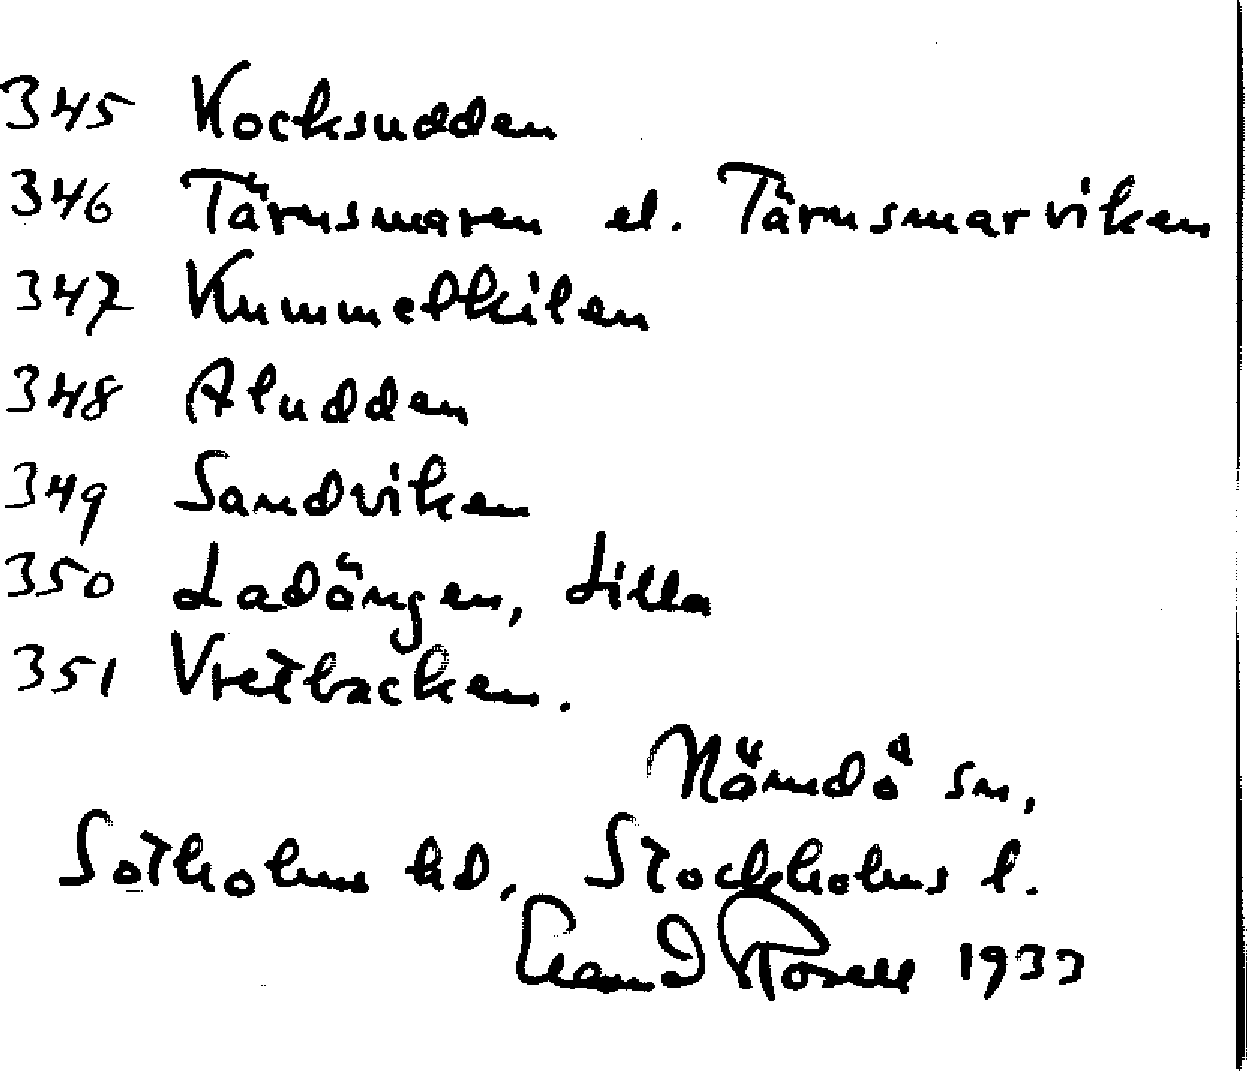 345 Kocksudden
346 Tärnsmaren el. Tärnsmarviken
347 Kummelkilen
348 Aludden
349 Sandviken
350 Ladängen, Lilla
351 Vretbacken.
Nämdö sn,
Sotholms hd, Stockholms l.
Erland Rosell 1933